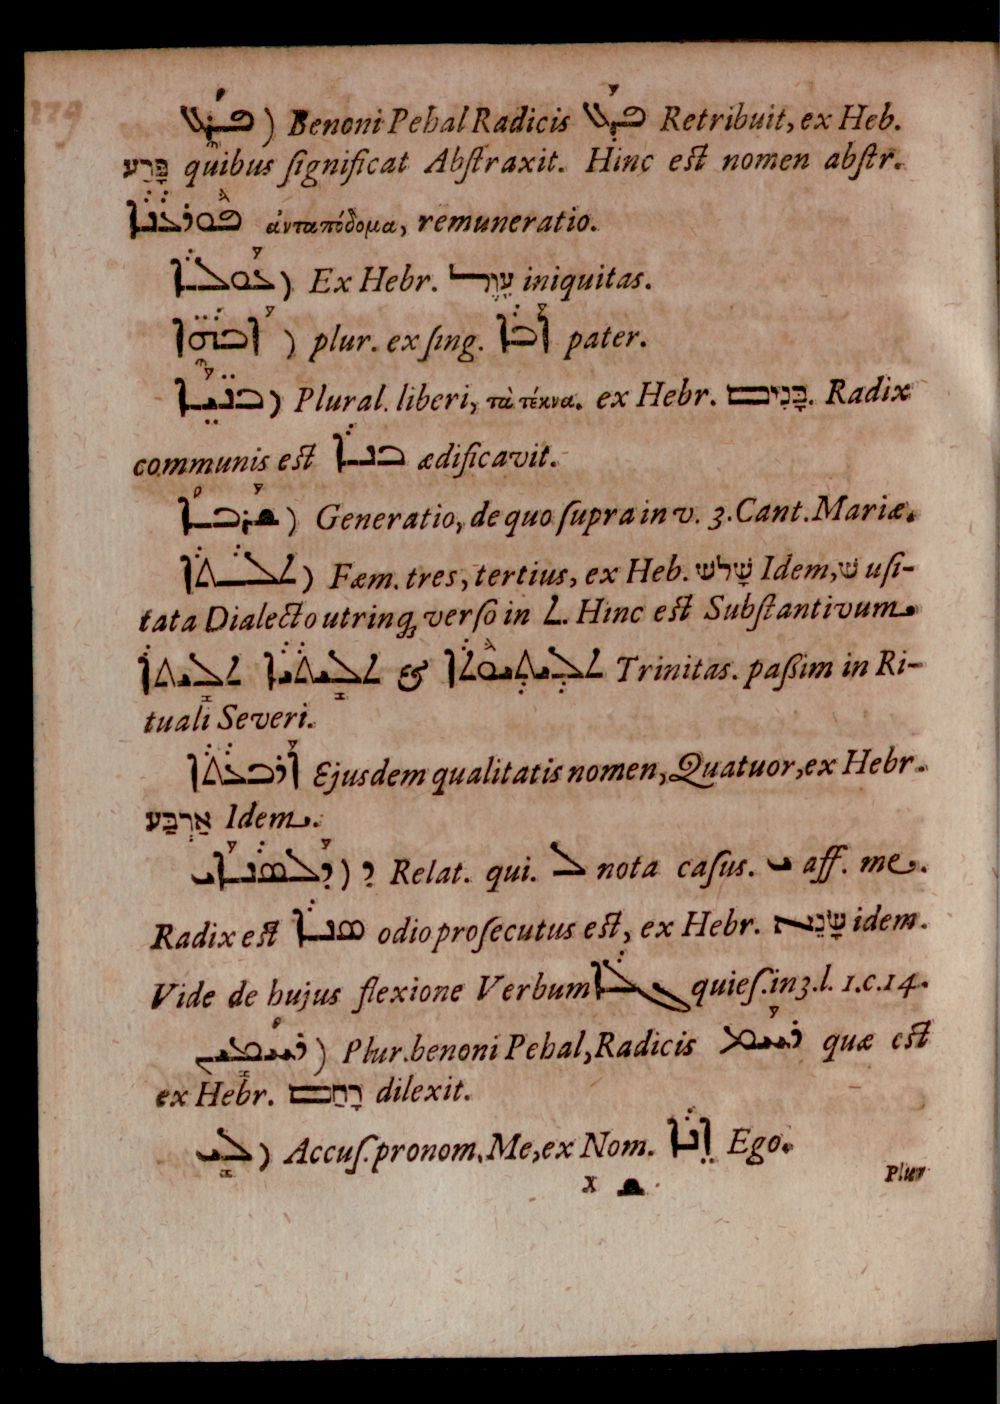 ܦܪܥ ) Benoni Pehal Radicis ܦܪܥ Retribuit, ex Heb.
פָּרַע quibus ſignificat Abſtraxit. Hinc eſt nomen abſtr.
ܦܘܪܥܢܐ ἀνταπόδομα, remuneratio.
ܥܘܠܐ ) Ex Hebr. עָוֶל iniquitas.
ܐܒܗܐ ) plur. ex ſing. ܐܒܐ pater.
ܒܢܝܐ ) Plural. liberi, τὰ τέκνα. ex Hebr. בָּנִים. Radix
communis eſt ܒܢܐ ædificavit.
ܫܪܒܐ ) Generatio, de quo ſupra in v. 3. Cant. Mariæ.
ܬܠܬܐ ) Fæm. tres, tertius, ex Heb. שָׁלשׁ Idem, שׁ uſi-
tata Dialecto utrinq; verſo in ܬ. Hinc eſt Subſtantivum
ܬܠܝܬܐ ܬܠܝܬܝܐ & ܬܠܝܬܝܘܬܐ Trinitas. paſſim in Ri-
tuali Severi.
ܐܪܒܥܬܐ Ejusdem qualitatis nomen, Quatuor, ex Hebr.
אַרְבַּע Idem.
ܕܠܣܢܐܝ ) ܕ Relat. qui. ܠ nota caſus. ܝ aff. me.
Radix eſt ܣܢܐ odio proſecutus eſt, ex Hebr. שָׂנֵא idem.
Vide de hujus flexione Verbum ܓܠܐ quieſ. in 3. l. 1. c. 14.
ܪܚܡܝܢ ) Plur. benoni Pehal, Radicis ܪܚܡ quæ eſt
ex Hebr. רָחַם dilexit.
ܠܝ ) Accuſ. pronom. Me, ex Nom. ܐܢܐ Ego.
X ܫ Plur